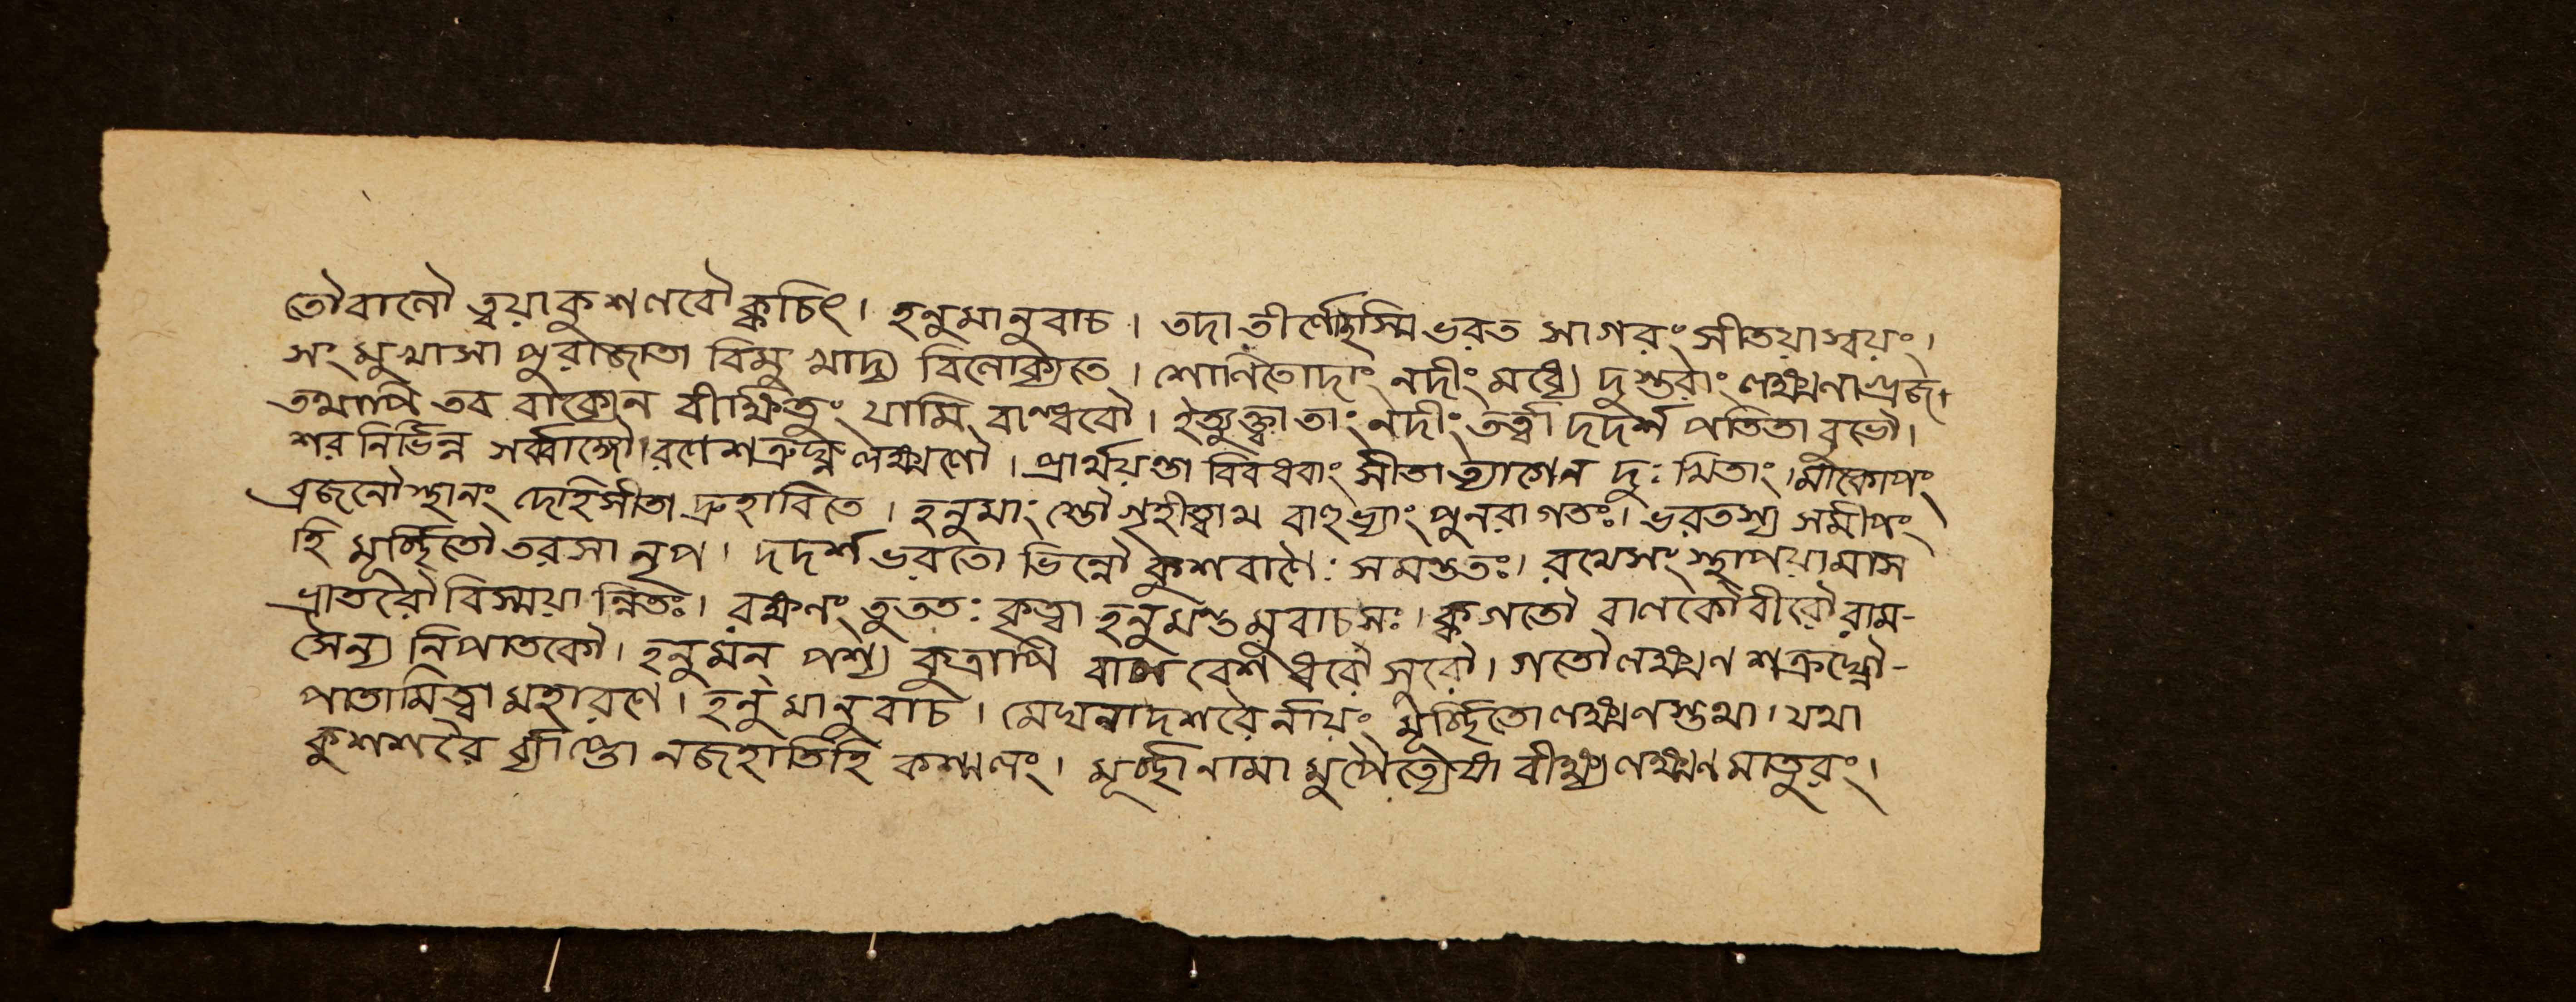 তৌবানৌ ত্বয়াকুশলবৌক্কচিৎ। হনুমানুবাচ। তদাতীর্ণোহস্মিভরত সাগরংসীতয়াস্বয়ং।
সংমুখাসা পুরাজাতা বিমুখাদ্য বিলোক্যতে। শোণিতোদাং নদীংমধ্যে দুস্তরাং লক্ষ্মণাগ্রজ।
তথাপি তব বাক্যেন বীক্ষিতুং যামি বান্ধবৌ। ইত্যুক্ত্বাতাংনদীংতর্ত্বা দদর্শ পতিতাবুভৌ।
শরনির্ভিন্ন সর্ব্বাঙ্গৌরণেশত্রুঘ্নলক্ষ্মণৌ। প্রার্থয়ন্তা বিবধরাং সীতাত্যাগেন দুঃখিতাং।মাকোপং
ব্রজনৌস্থানং দেহিসীতা দ্রুহাবিতে। হনুমাংস্তৌগৃহীত্বাথ বাহুভ্যাংপুনরাগতঃ। ভরতস্য সমীপং
হি মূর্চ্ছিতৌতরসা নৃপ। দদর্শভরতো ভিন্নৌ কুশবাণৈঃ সমন্ততঃ। রথেসংস্থাপয়ামাস
ভ্রাতরৌবিস্ময়ান্নিতঃ। রক্ষণংতুততঃ কৃত্বা হনুমন্তমুবাচসঃ। ক্কগতৌ বালকৌবীরৌরাম-
সৈন্য নিপাতকৌ। হনুমন্ পশ্য কুত্রাপি বাল বেশধরৌ সুরৌ। গতৌলক্ষ্মণ শত্রুঘ্নৌ-
পাতামিত্বা মহারণে। হনুমানুবাচ। মেঘনাদশরৈর্নায়ং মূর্চ্ছিতোলক্ষ্মণস্তথা। যথা
কুশশরৈর্ব্যাপ্তো নজহাতিহি কশ্মলং। মূর্চ্ছানামা মুপৈত্যেষা বীক্ষ্যলক্ষ্মণমাতুরং।